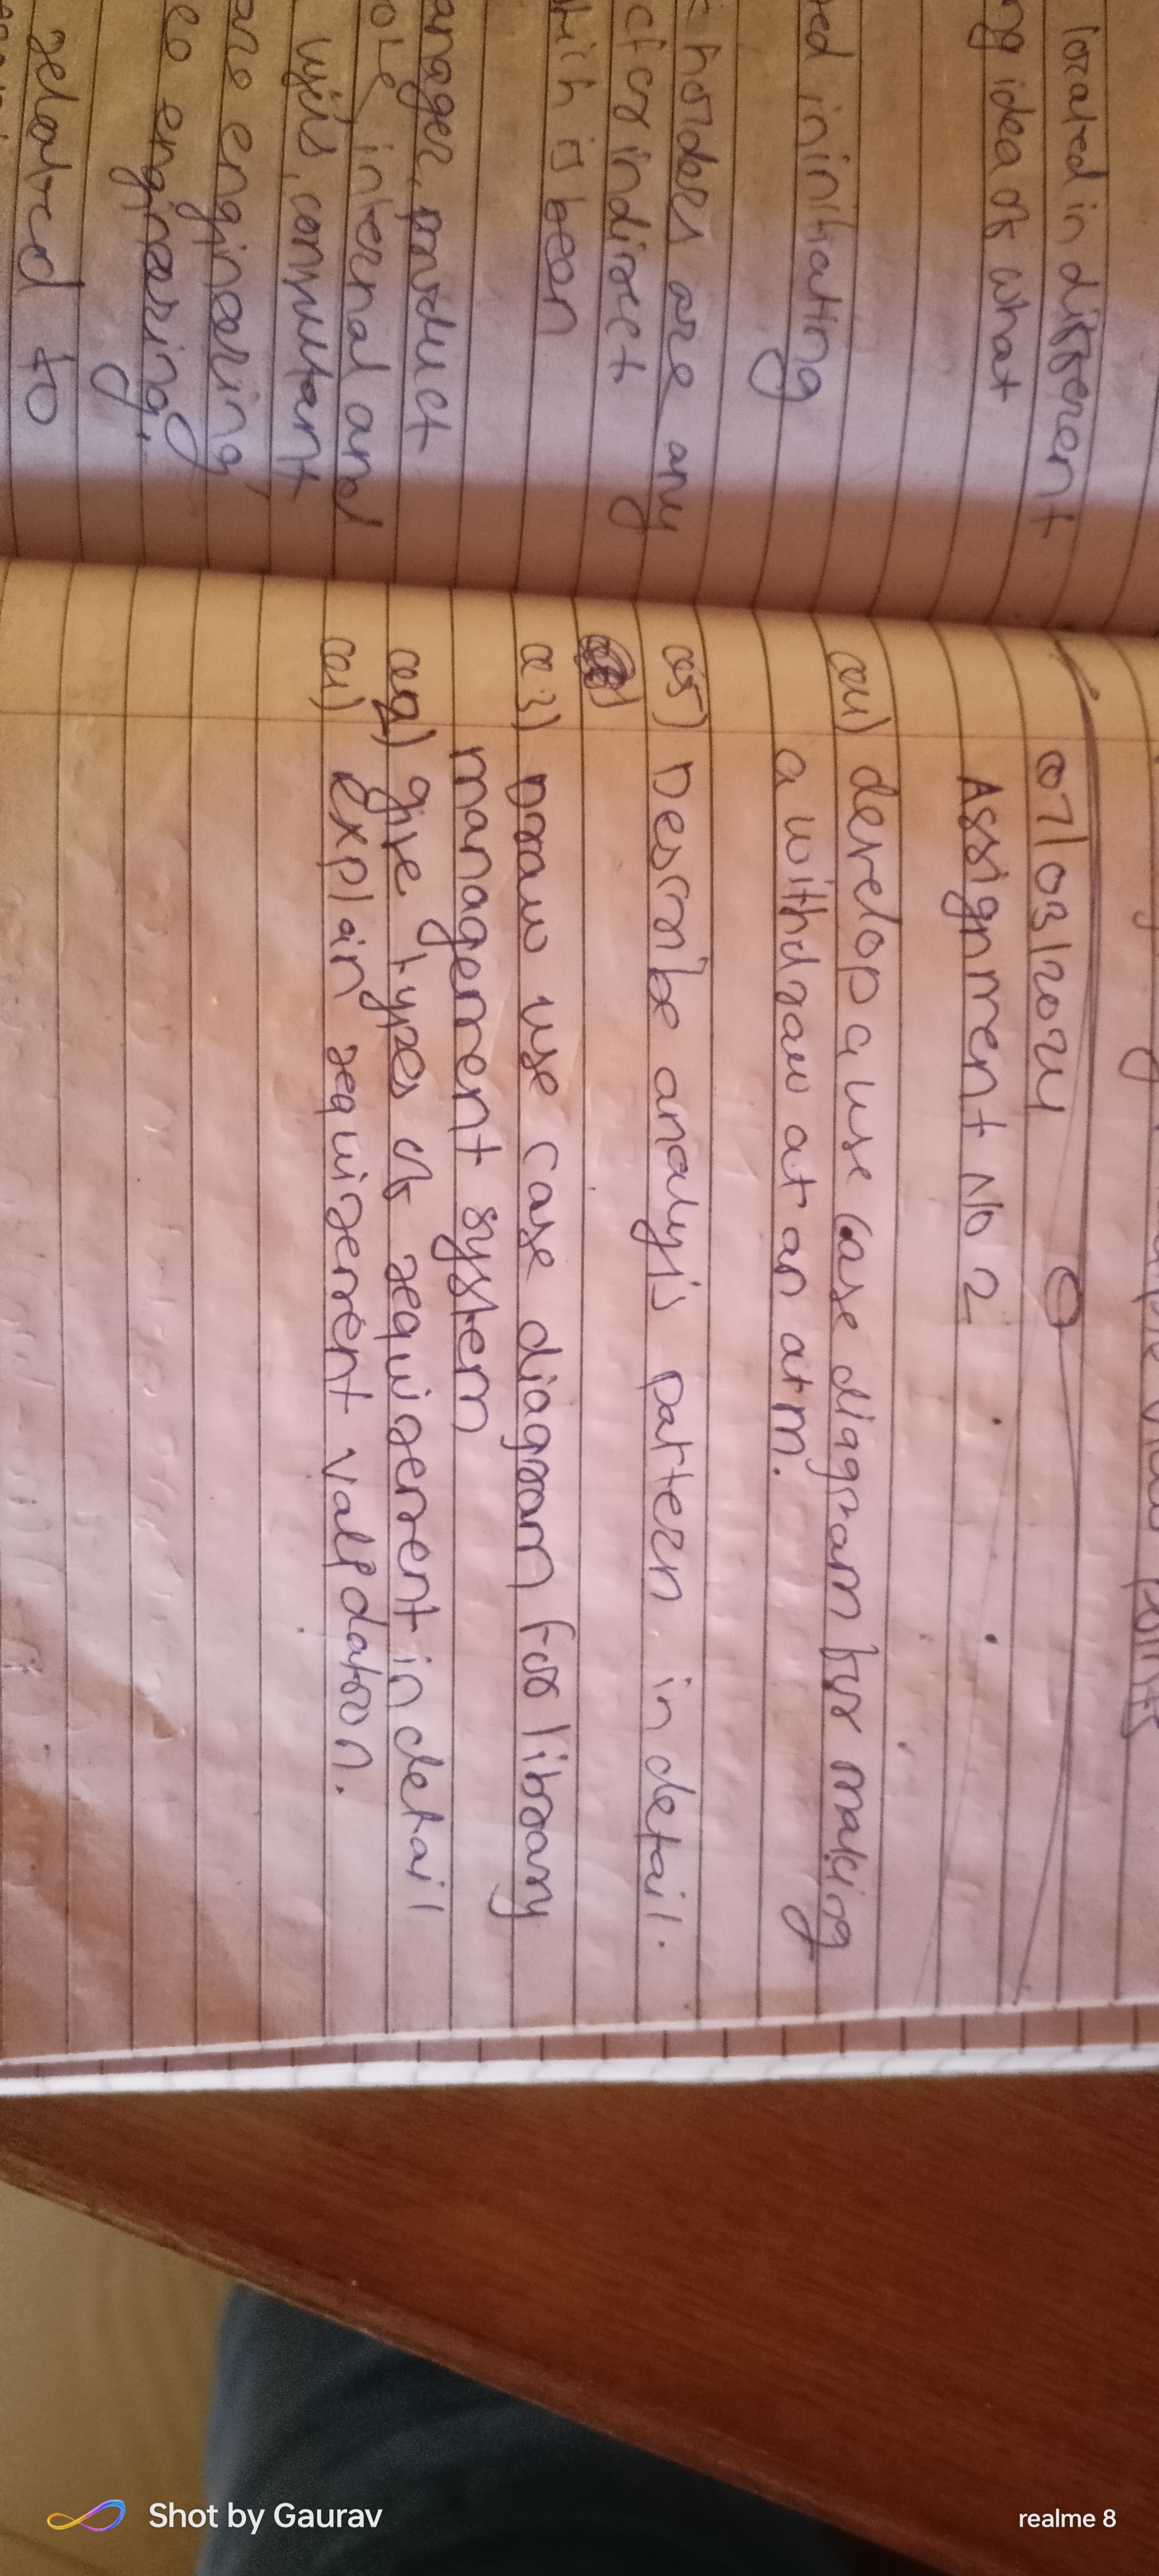 located in different
ng idea of what
ed in initiating
holders are any
ct or indirect
hich is been
anager, product
ole, internal and
uyis, consultant
are engineering
eo engineering.
related to
view points
07/03/2024
Assignment No 2
Q4) develop a use case diagram for making
a withdraw at an atm.
Q5) Describe analyis pattern in detail.
Q3) Draw use case diagram for library
management system
Q2) give types of requirement in detail
Q1) explain requirement validation.
realme 8
Shot by Gaurav